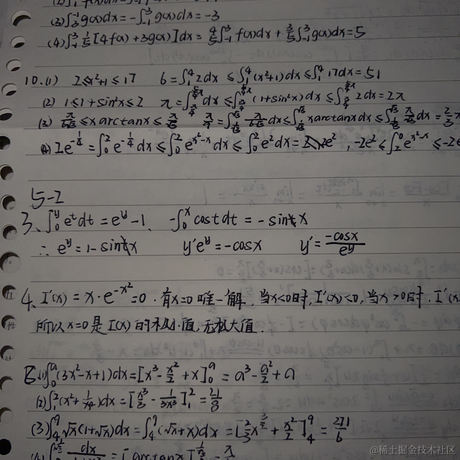 (3) ∫₃⁻¹ g(x)dx = -∫₋₁³ g(x)dx = -3
(4) ∫₋₁³ 1/5[4f(x)+3g(x)]dx = 4/5∫₋₁³ f(x)dx + 3/5∫₋₁³ g(x)dx = 5
10.(1) 2≤x²+1≤17 6=∫₁⁴2dx≤∫₁⁴(x²+1)dx≤∫₁⁴17dx=51
(2) 1≤1+sin²x≤2 π=∫dx≤∫(1+sin²x)dx≤∫2dx=2π
(3) ≤xarctanx≤ ≤∫xarctanxdx≤
(4) 2e^(-1/4)=∫₀²e^(-1/4)dx≤∫₀²e^(x²-x)dx≤∫₀²e²dx=2e², -2e²≤∫₂⁰e^(x²-x)≤-2e
5-2
3. ∫₀ʸeᵗdt=eʸ-1, -∫₀ˣcostdt=-sinx
∴ eʸ=1-sinx y'eʸ=-cosx y'=-cosx/eʸ
4. I'(x)=x·e^(-x²)=0·有x=0唯一解,当x<0时,I'(x)<0,当x>0时,I'(x
所以x=0是I(x)的极小值,无极大值.
(1)∫₀ᵃ(3x²-x+1)dx=[x³-x²/2+x]₀ᵃ=a³-a²/2+a
(2)∫₁²(x²+1/x⁴)dx=[x³/3-1/3x³]₁²=21/8
(3)∫₄⁹√x(1+√x)dx=∫₄⁹(√x+x)dx=[2/3x^(3/2)+x²/2]₄⁹=271/6
=[arctanx]
@稀土掘金技术社区